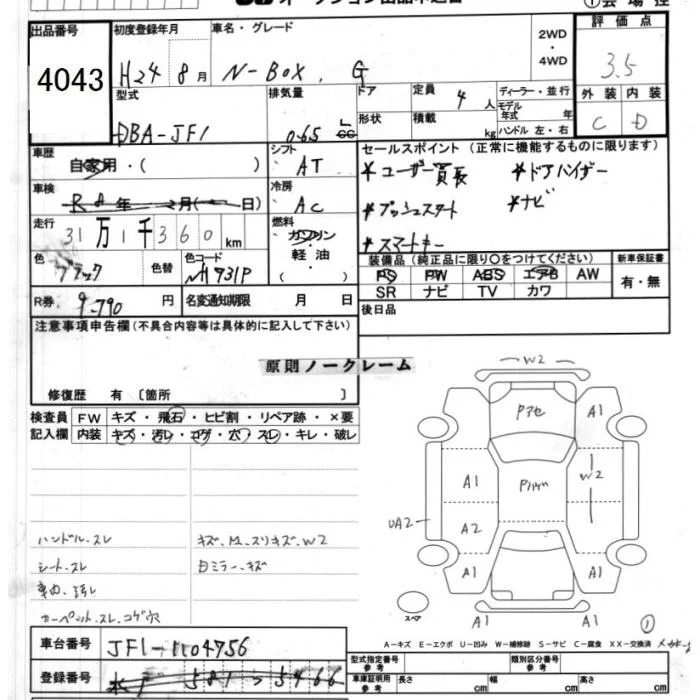 ①会場控
出品番号 初度登録年月 車名・グレード 2WD・4WD 評価点
4043 H24 8月 N-BOX. G 3.5
型式 排気量 ドア 定員 4人 ディーラー・並行 外装 内装
DBA-JF1 0.65 L cc 形状 積載 kg モデル年式 年 ハンドル 左・右 C D
車歴 自家用・( ) シフト AT セールスポイント(正常に機能するものに限ります)
*ユーザー買長 *ドアバイザー
車検 R 年 月( 日) 冷房 AC *プッシュスタート *ナビ
走行 31万1千360km 燃料 ガソリン 軽油 ( ) *スマートキー
色 ブラック 色替 色コード NH731P 装備品(純正品に限り○をつけてください) 新車保証書
PS PW ABS エアB AW 有・無
SR ナビ TV カワ
R券 9,790円 名変通知期限 月 日 後日品
注意事項申告欄(不具合内容等は具体的に記入して下さい)
原則ノークレーム
修復歴 有〔箇所 〕
検査員 FW キズ・飛石・ヒビ割・リペア跡・×要
記入欄 内装 キズ・汚レ・コゲ・穴・スレ・キレ・破レ
ハンドル.スレ キズ、M.スリキズ、W2
シート.スレ 白ミラー.キズ
車内.汚レ
カーペット.スレ.コゲ穴
W2
A1 Pアセ A1
A1 Pハゲ W2
UA2 A2
A1 A1
スペア A1 A1 ①
A-キズ E-エクボ U-凹み W-補修跡 S-サビ C-腐食 XX-交換済
車台番号 JF1-1104756 型式指定番号 参考 類別区分番号 参考
登録番号 581 5466 車庫証明用 参考 長さ cm 幅 cm 高さ cm